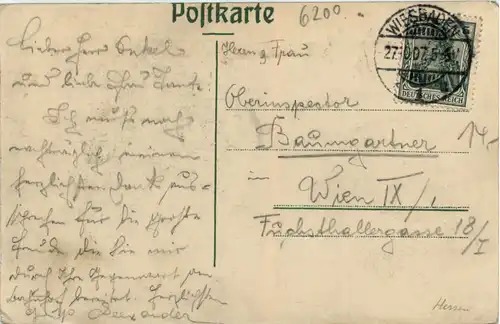 Postkarte
6200
WIESBADEN
27.
07.
DEUTSCHES REICH
Lieber Herr Onkel
und liebe Frau Tante.
Ich muss noch
nachträglich meinen
herzlichsten Dank aus-
sprechen für die große
Freude die Sie mir
durch Ihre Gegenwart am
Bahnhof bereitet. Herzlichsten
Alexander
Herrn & Frau
Oberinspektor
Baumgartner
14.-
in
Wien IX/1
Fuchsthallergasse 18/I
Hessen